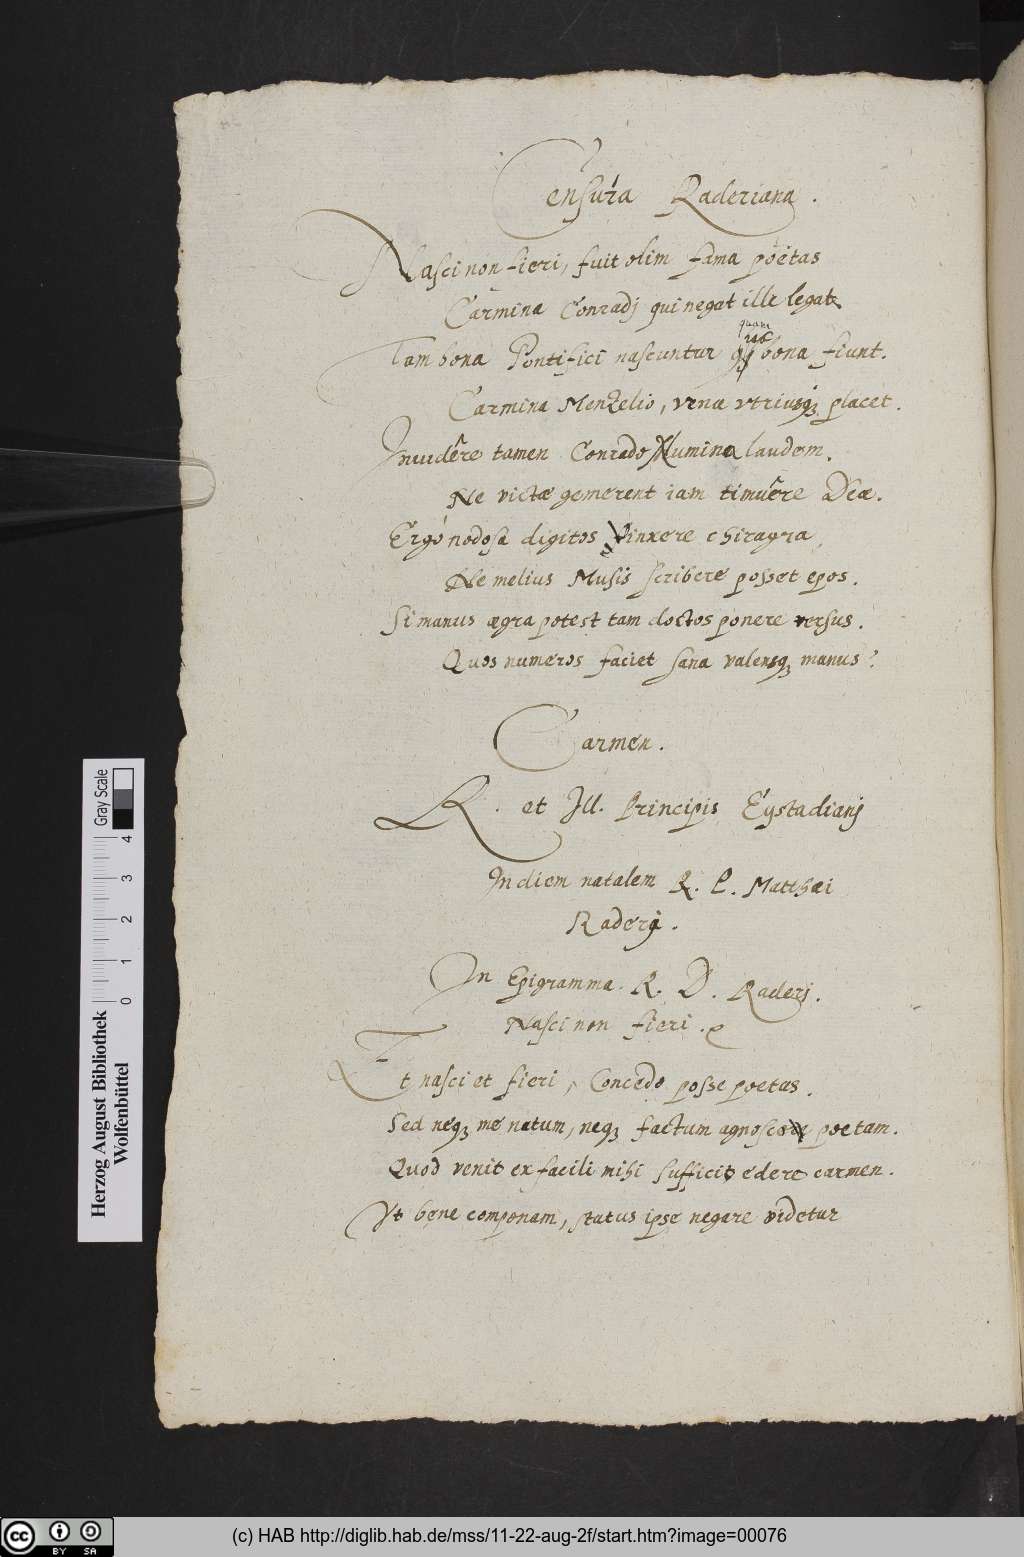 Censura Raderiana.
Nasci non fieri, fuit olim fama poëtas
Carmina Conradj qui negat ille legat
quam
Tam bona Pontifici nascuntur bona fiunt.
Carmina Menzelio, vena vtriusqꝫ placet.
Inuidêre tamen Conrado Numina laudem.
Ne victæ gemerent iam timuêre Deæ.
Ergó nodosa digitos vinxere chiragra
Ne melius Musis scribere posset epos.
Si manus ægra potest tam doctos ponere versus.
Quos numeros faciet sana valensqꝫ manus?
Carmen.
R. et Ill. Principis Eystadianj
In diem natalem R. P. Matthæi
Raderj.
In Epigramma R. D. Raderj.
Nasci non fieri.
Et nasci et fieri, Concedo posse poetas.
Sed neqꝫ me natum, neqꝫ factum agnosco poetam.
Quod venit ex facili mihi sufficit edere carmen.
Vt bene componam, status ipse negare videtur
Herzog August Bibliothek
Wolfenbüttel
0 1 2 3 4
Gray Scale
cc BY SA
(c) HAB http://diglib.hab.de/mss/11-22-aug-2f/start.htm?image=00076